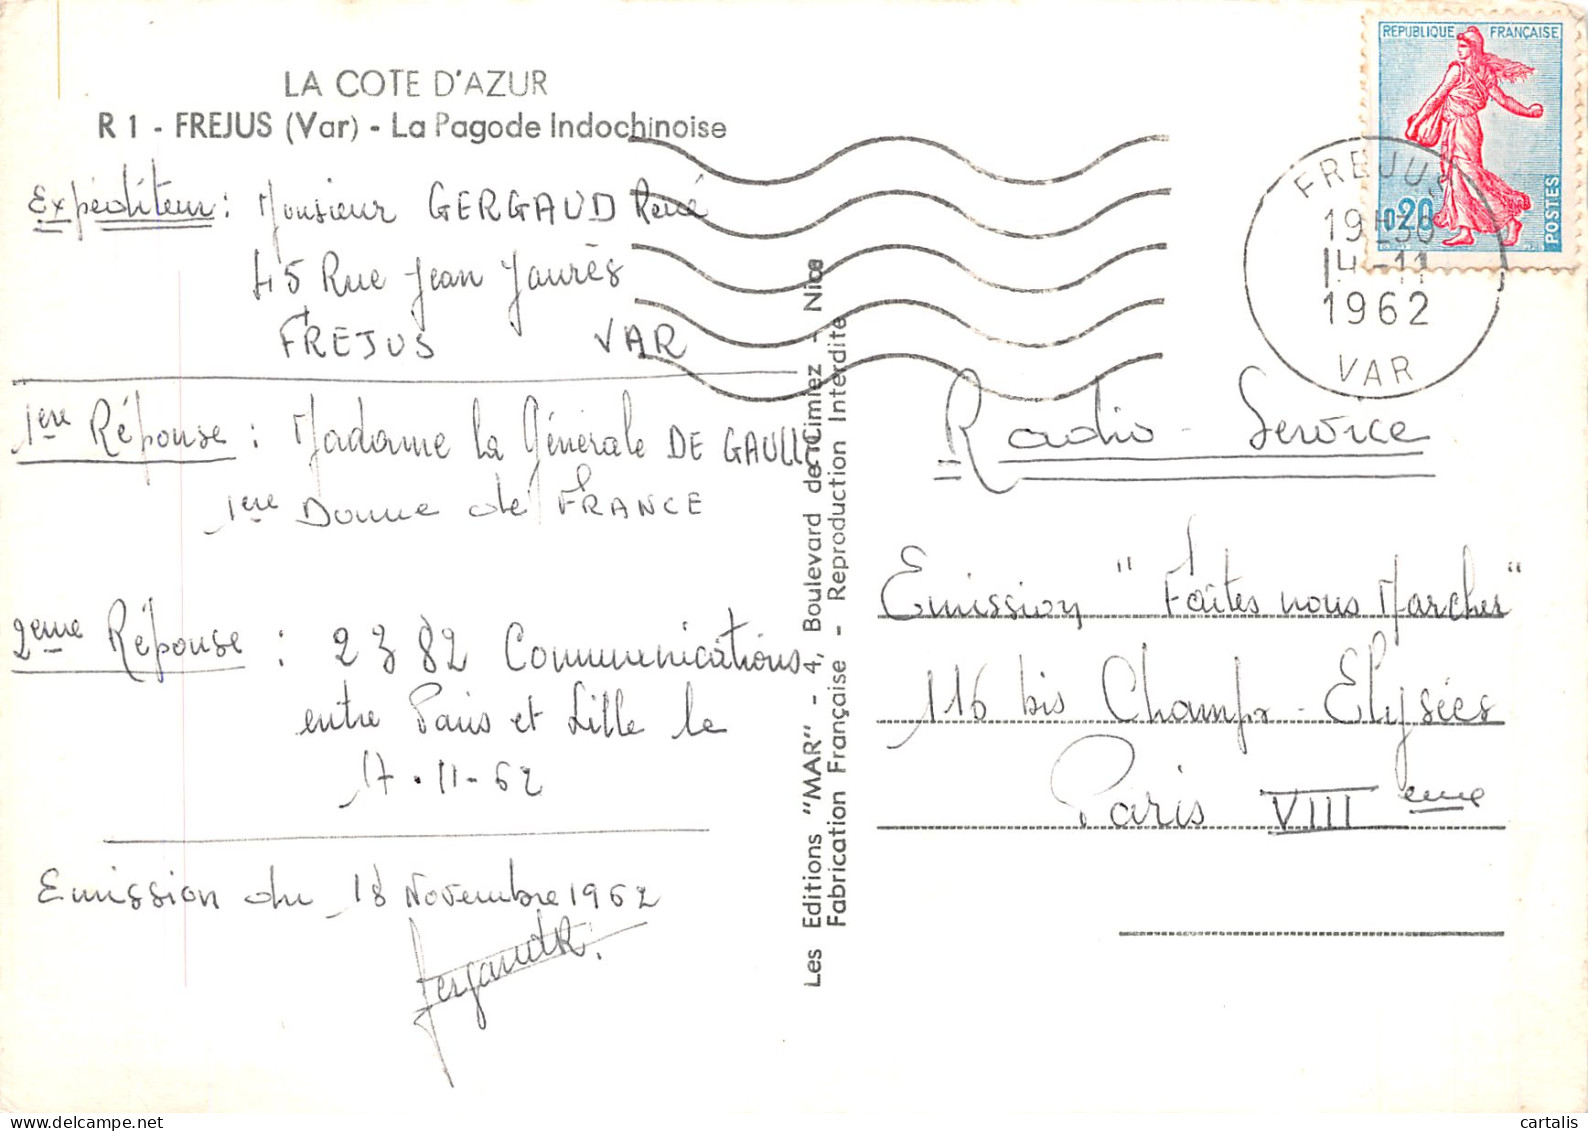 LA COTE D'AZUR
R 1 - FREJUS (Var) - La Pagode Indochinoise
Expéditeur : Monsieur GERGAUD René
45 Rue Jean Jaurès
FREJUS VAR
1ere Réponse : Madame la Générale DE GAULLE
1ere Donne de FRANCE
2eme Réponse : 2382 Communications
entre Paris et Lille le
17-11-62
Emission du 18 Novembre 1962
GergaudR.
Les Editions "MAR" - 4, Boulevard de Cimiez - Nice
Fabrication Française - Reproduction Interdite
REPUBLIQUE FRANÇAISE
0,20
POSTES
FREJUS
19H30
14-11
1962
VAR
Radio-Service
Emission "Faites nous Marcher"
116 bis Champs-Elysées
Paris VIIIeme
cartalis